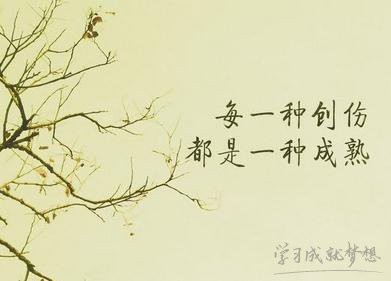 每一种创伤
都是一种成熟
学习成就梦想